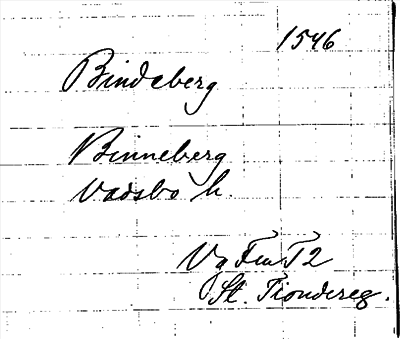 1546
Bindeberg
Binneberg
Vadsbo h.
Vg Fru T2
St. Tiondereg.